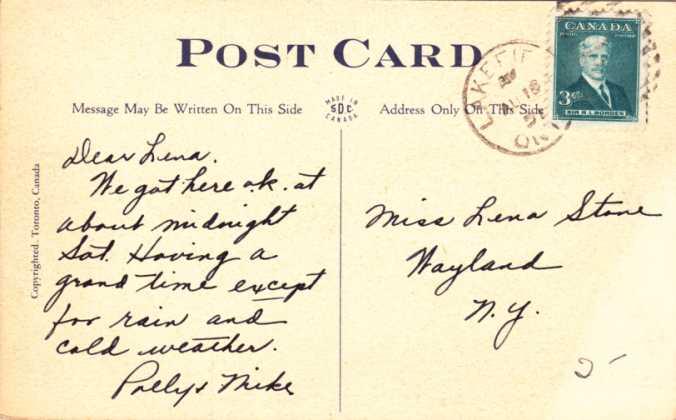 POST CARD
Message May Be Written On This Side
MADE IN
SDC
CANADA
Address Only On This Side
CANADA
3
SIR R.L. BORDEN
LAKEFIE
18
ONT
Copyrighted. Toronto, Canada
Dear Lena.
We got here o.k. at
about midnight
Sat. Having a
grand time except
for rain and
cold weather.
Polly & Mike
Miss Lena Stone
Wayland
N.Y.